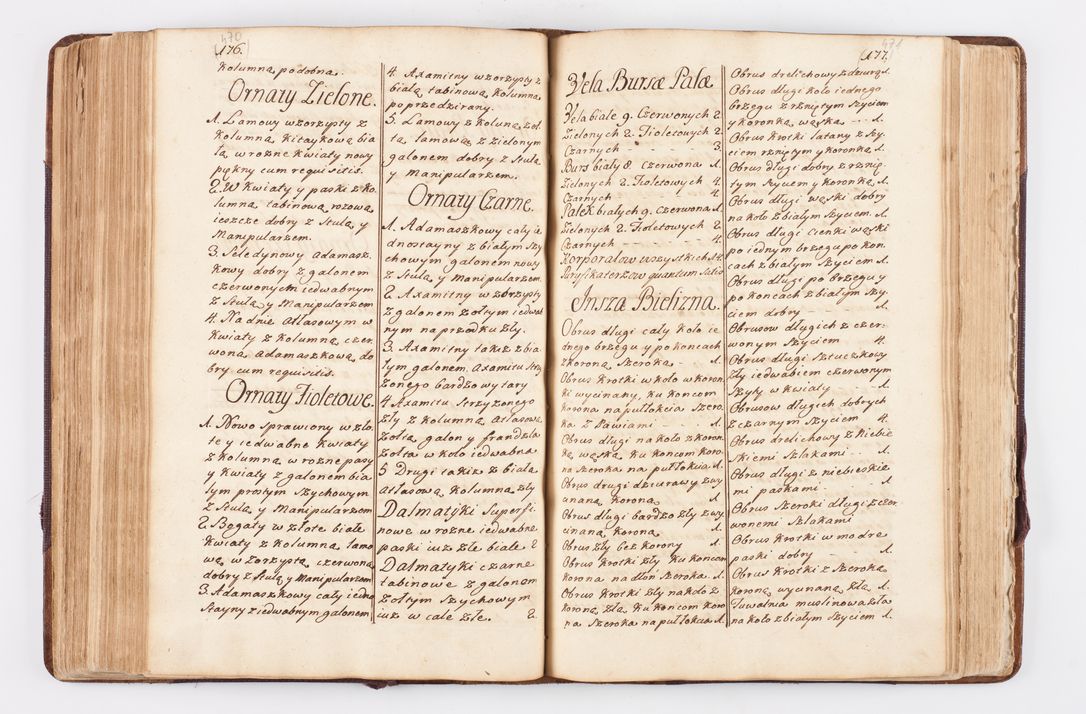 470
176.
kolumną podobną.
Ornaty Zielone.
1. Lamowy wzorzysty z
kolumną kitaykową bia
łą w rozne kwiaty nowy
piękny cum requisitis.
2. W kwiaty y paski z ko
lumną tabinową rozową
ieszcze dobry z stułą y
Manipularzem.
3. Seledynowy adamasz
kowy dobry z galonem
czerwonym iedwabnym
z stułą y Manipularzem
4. Na dnie Atłasowym w
kwiaty z kolumną czer
woną adamaszkową do
bry cum requisitis.
Ornaty Fioletowe.
1. Nowo sprawiony w zło
te y iedwabne kwiaty
z kolumną w rozne pasy
y kwiaty z galonem bia
łym prostym szychowym
z stułą y Manipularzem
2. Bogaty w złote białe
kwiaty z kolumną lamo
wą wzorzystą czerwoną
dobry z stułą y Manipularzem
3. Adamaszkowy cały iedno
stayny z iedwabnym galonem
4. Axamitny wzorzysty z
białą tabinową kolumną
poprzedzirany.
5. Lamowy z kolumą zoł
tą lamową z zielonym
galonem dobry z stułą
y Manipularzem.
Ornaty Czarne.
1. Adamaszkowy cały ie
dnostayny z białym szy
chowym galonem nowy
z stułą y Manipularzem
2. Axamitny wzorzysty
z galonem zołtym iedwa
nym na przodku zły.
3. Axamitny takiz z bia
łym galonem. Axamitu strzy
zonego bardzo wytary
4 Axamitu strzyzonego
zły z kolumną atłasową
zołtą galon y frandzla
zołta w koło iedwabna
5 Drugi takiz z białą
atłasową kolumną zły
Dalmatyki superfi
nowe w rozne iedwabne
paski iuz złe białe 2
Dalmatyki czarne
tabinowe z galonem
zołtym szychowym
iuz w cale złe. 2.
471
177.
Vela Bursæ Palæ
Vela białe 9. Czerwonych 2.
Zielonych 2. Fioletowych 2.
Czarnych 3.
Burs biały 8 czerwona 1.
Zielonych 2. Fioletowych 4.
Czarnych 4.
Palek białych 9. czerwona 1.
Zielonych 2. Fioletowych 2
Czarnych 4.
Korporałow wszystkich 14
Puryfikaterzow quantum satis
Insza Bielizna.
Obrus długi cały koło ie
dnego brzegu y po koncach
z koroną szeroką 1.
Obrus krotki w koło w koron
ki wycinany, ku koncom
korona na pułłokcia szero
ka z Pawiami 1.
Obrus długi na koło z koron
ką wąską ku koncom koro
na szeroka na pułłokcia 1.
Obrus drugi dziurawy zwy
unaną koroną 1.
Obrus długi bardzo zły zwy
unaną koroną 1.
Obrus zły bez korony 1.
Obrus krotki zły ku koncom
korona na dłon szeroka 1.
Obrus krotki zły na koło z
koroną złą ku koncom koro
na szeroka na pułłokcia 1.
Obrus drelichowy z dziurą 1.
Obrus długi koło iednego
brzegu z rzniętym szyciem
y koronką wąską 1.
Obrus krotki łatany z szy
ciem rzniętym y koronką 1.
Obrus długi dobry z rznię
tym szyciem y koronką 1.
Obrus długi wąski dobry
na koło z białym szyciem 1.
Obrus długi cienki wąski
po iednym brzegu po kon
cach z białym szyciem 1.
Obrus długi po brzegu y
po koncach z białym szy
ciem dobry 1.
Obrusow długich z czer
wonym szyciem 4.
Obrus długi sztuczkowy
zły iedwabiem czerwonym
szyty w kwiaty 1.
Obrusow długich dobrych
z czarnym szyciem 4.
Obrus drelichowy z niebie
skiemi szlakami 1.
Obrus długi z niebieskie
mi paskami 1.
Obrus szeroki długi z czer
wonemi szlakami
Obrus krotki w modre
paski dobry 1.
Obrus krotki z szeroką
koroną wycunaną złą 1.
Tuwalnia muslinowa zła
na koło z białym szyciem 1.